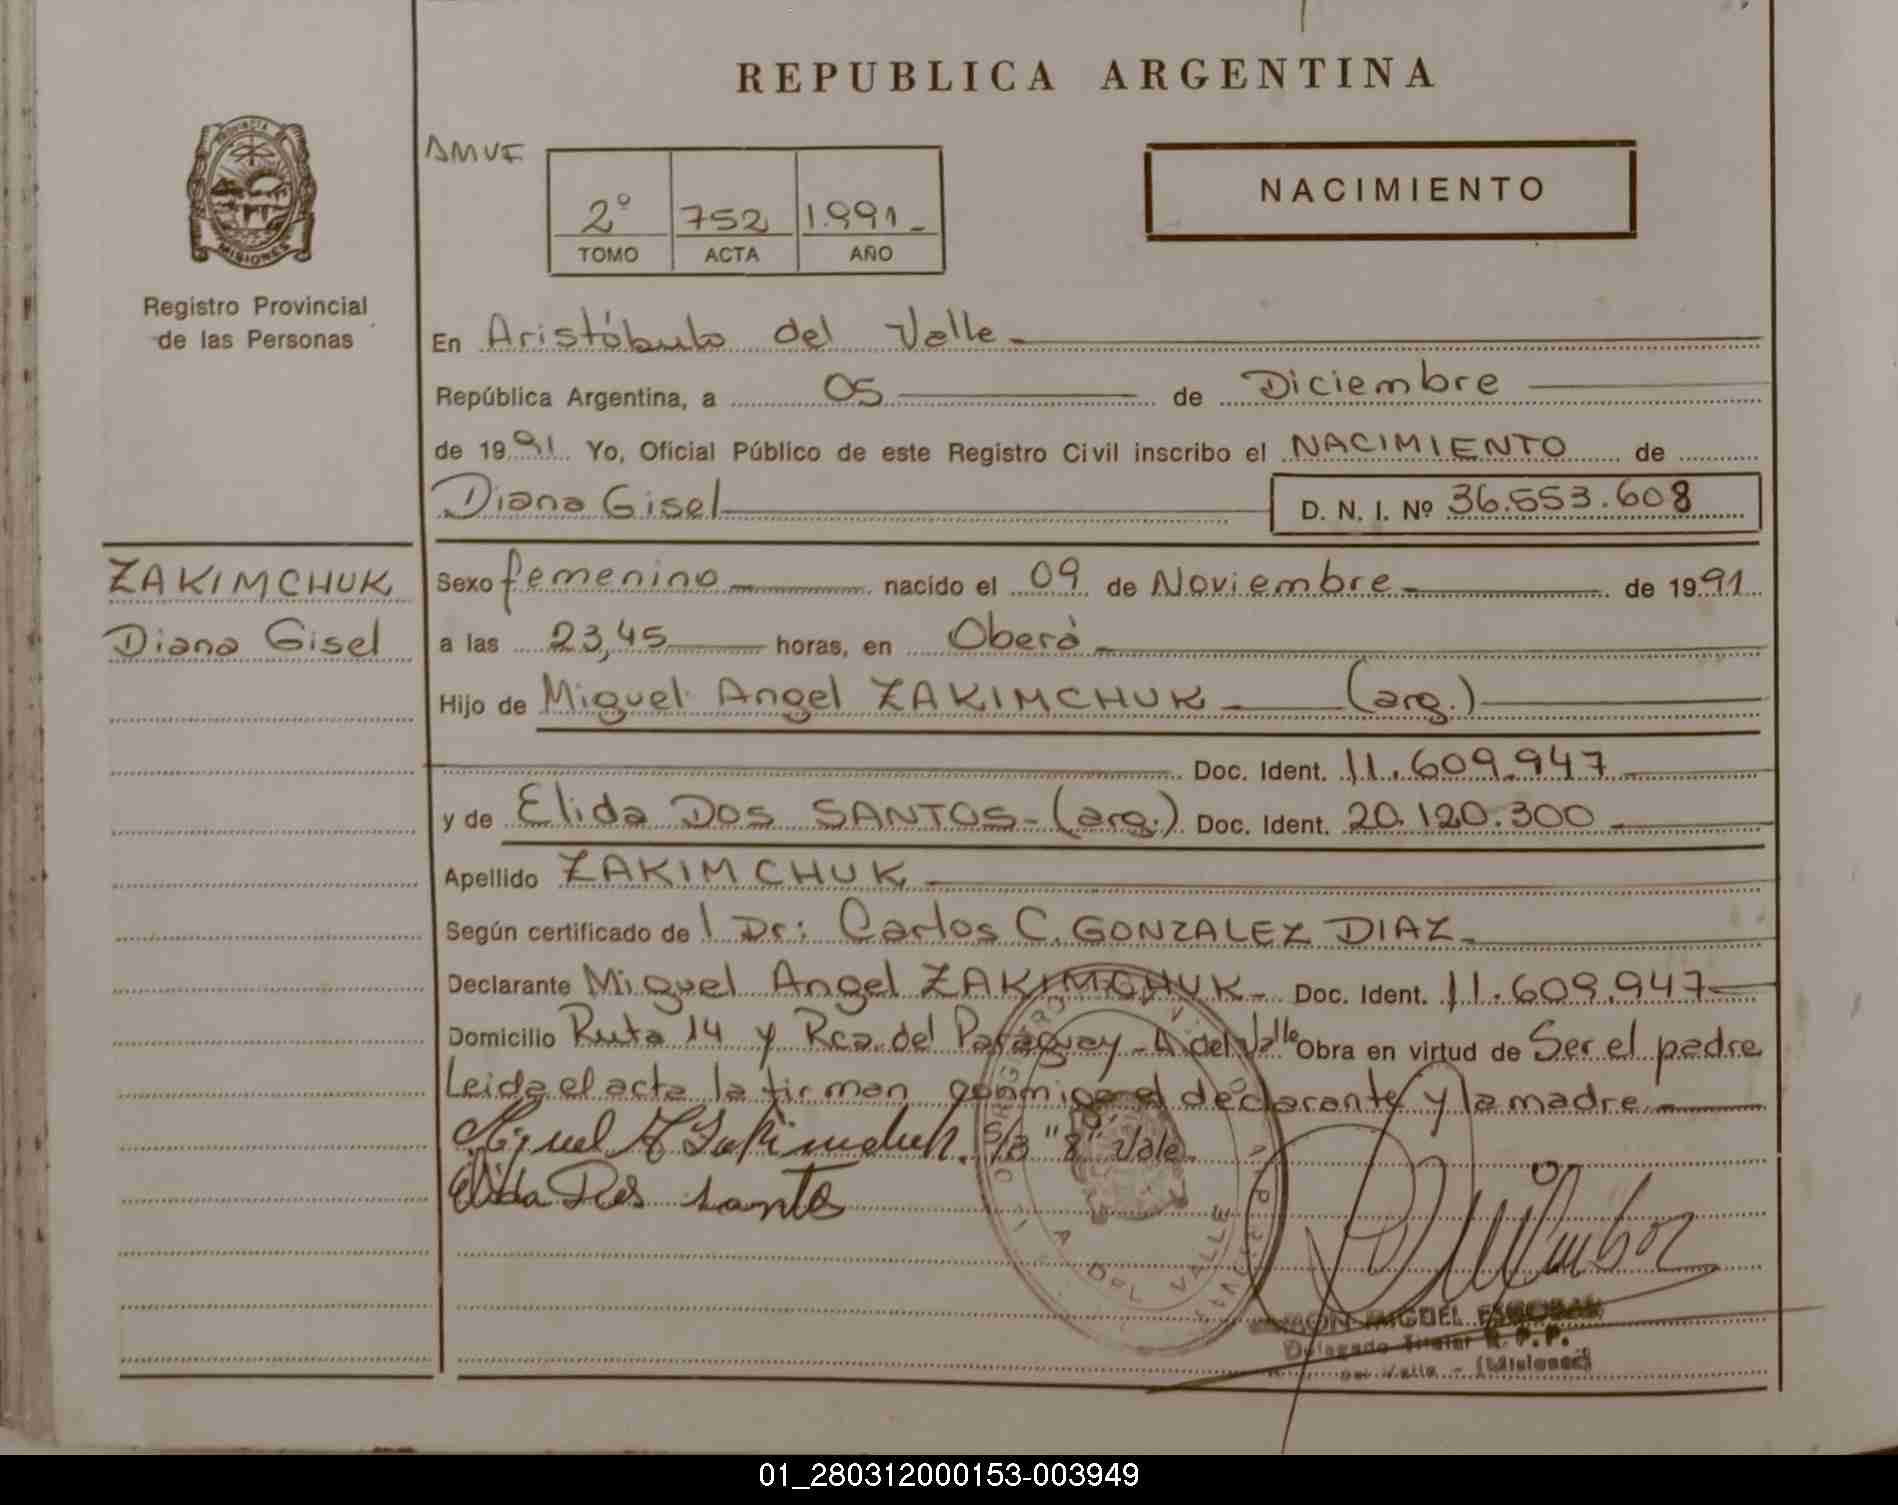 REPUBLICA ARGENTINA
PROVINCIA DE
MISIONES
Registro Provincial
de las Personas
AMVF
NACIMIENTO
2º 752 1.991_
TOMO ACTA AÑO
En Aristóbulo del Valle
República Argentina, a 05 de Diciembre
de 1991 Yo, Oficial Público de este Registro Civil inscribo el NACIMIENTO de
Diana Gisel D. N. I. Nº 36.553.608
ZAKIMCHUK
Diana Gisel
Sexo femenino nacido el 09 de Noviembre de 1991
a las 23,45 horas, en Oberá
Hijo de Miguel Angel ZAKIMCHUK (arg.)
Doc. Ident. 11.609.947
y de Elida DOS SANTOS - (arg.) Doc. Ident. 20.120.300
Apellido ZAKIMCHUK
Según certificado de l Dr: Carlos C. GONZALEZ DIAZ
Declarante Miguel Angel ZAKIMCHUK Doc. Ident. 11.609.947
Domicilio Ruta 14 y Rca. del Paraguay - A del Valle Obra en virtud de Ser el padre
Leida el acta la firman conmigo el declarante y la madre
Miguel A Zakimchuk. S/B "8" Vale
Elida Dos Santos
A DEL VALLE
MIGUEL ESCOBAR
Delegado Titular R. P. P.
del Valle - (Misiones)
01_280312000153-003949